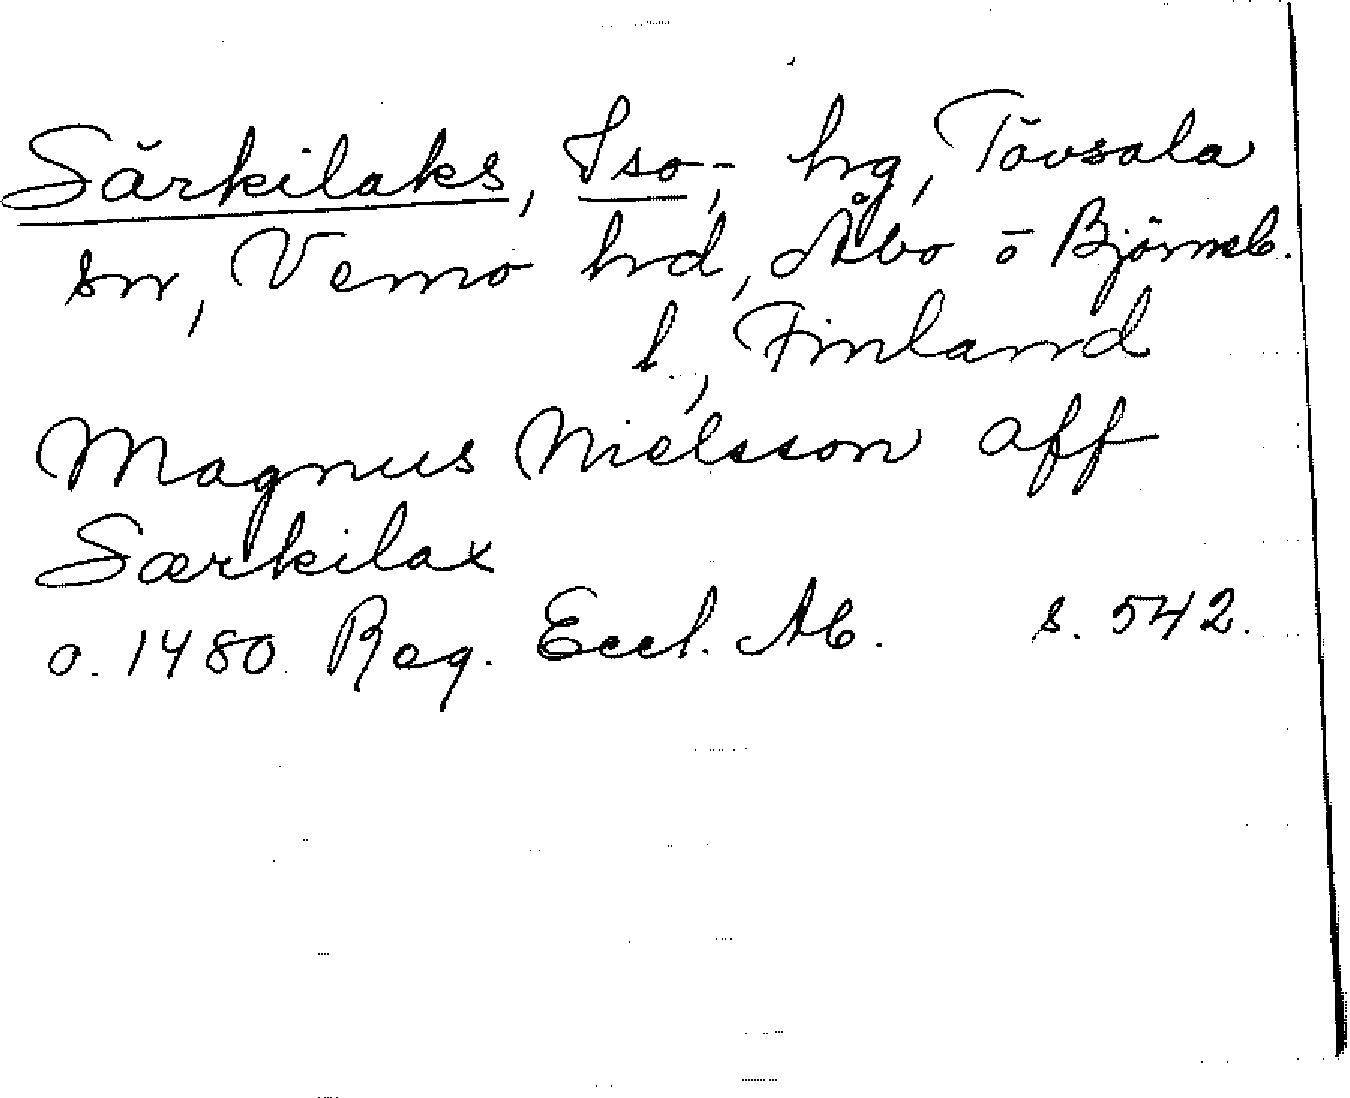 Särkilaks, Iso-, hrg, Tövsala
sn, Vemo hrd, Åbo o Björneb.
l., Finland
Magnus Nielsson aff
Særkilax
o. 1480. Reg. Eccl. Ab. s. 542.